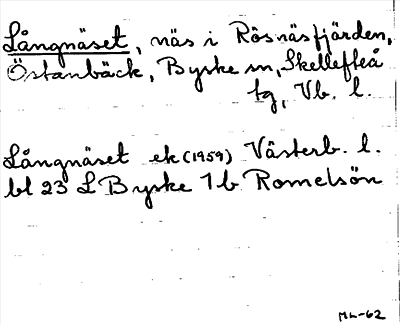 Långnäset, näs i Rösnäsfjärden,
Östanbäck, Byske sn, Skellefteå
tg, Vb. l.
Långnäset ek (1959) Västerb. l.
bl 23 L Byske 1b Romelsön
ML-62